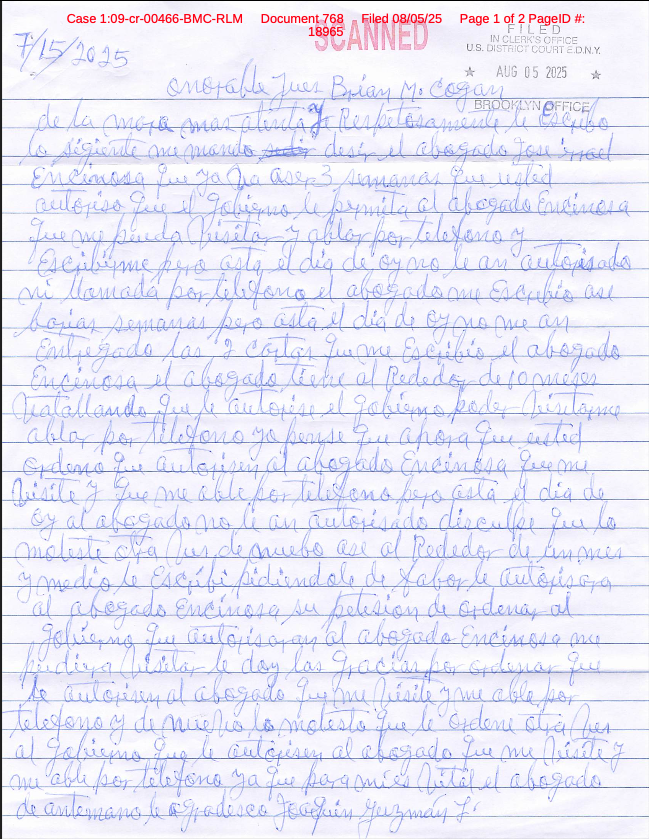 Case 1:09-cr-00466-BMC-RLM Document 768 Filed 08/05/25 Page 1 of 2 PageID #: 18965
SCANNED
FILED
IN CLERK'S OFFICE
U.S. DISTRICT COURT E.D.N.Y.
★ AUG 05 2025 ★
BROOKLYN OFFICE
7/15/2025
onorable Jues Brian M. Cogan
de la mora mas atenta y Respetosamente le Escribo
lo sigiente me mando desir el abogado Jose isrrael
Encinosa que ya ba aser 3 semanas que usted
autoriso que el gobierno le permita al abogado Encinosa
que me pueda Visitar y ablar por telefono y
Escribirme pero asta el dia de oy no le an autorisado
ni llamada por telefono el abogado me Escribio ase
barias semanas pero asta el dia de oy no me an
Entregado las 2 cartas que me Escribio el abogado
Encinosa el abogado tiene al Rededor de 10 meses
Vatallando que le autorise el gobierno poder Visitarme
ablar por telefono yo pense que ahora que usted
ordeno que autorisen al abogado Encinosa que me
Visite y que me able por telefono pero asta el dia de
oy al abogado no le an autorisado disculpe que lo
moleste otra Ves de nuebo ase al Rededor de un mes
y medio le Escribi pidiendole de fabor le autorisara
al abogado Encinosa su petision de ordenar al
gobierno que autorisaran al abogado Encinosa me
pudiera Visitar le doy las gracias por ordenar que
le autorisen al abogado que me Visite y me able por
telefono y de nuebo lo molesto que le ordene otra Ves
al gobierno que le autorisen al abogado que me Visite y
me able por telefono ya que para mi es Vital el abogado
de antemano le agradesco Joaquin Guzmán L.